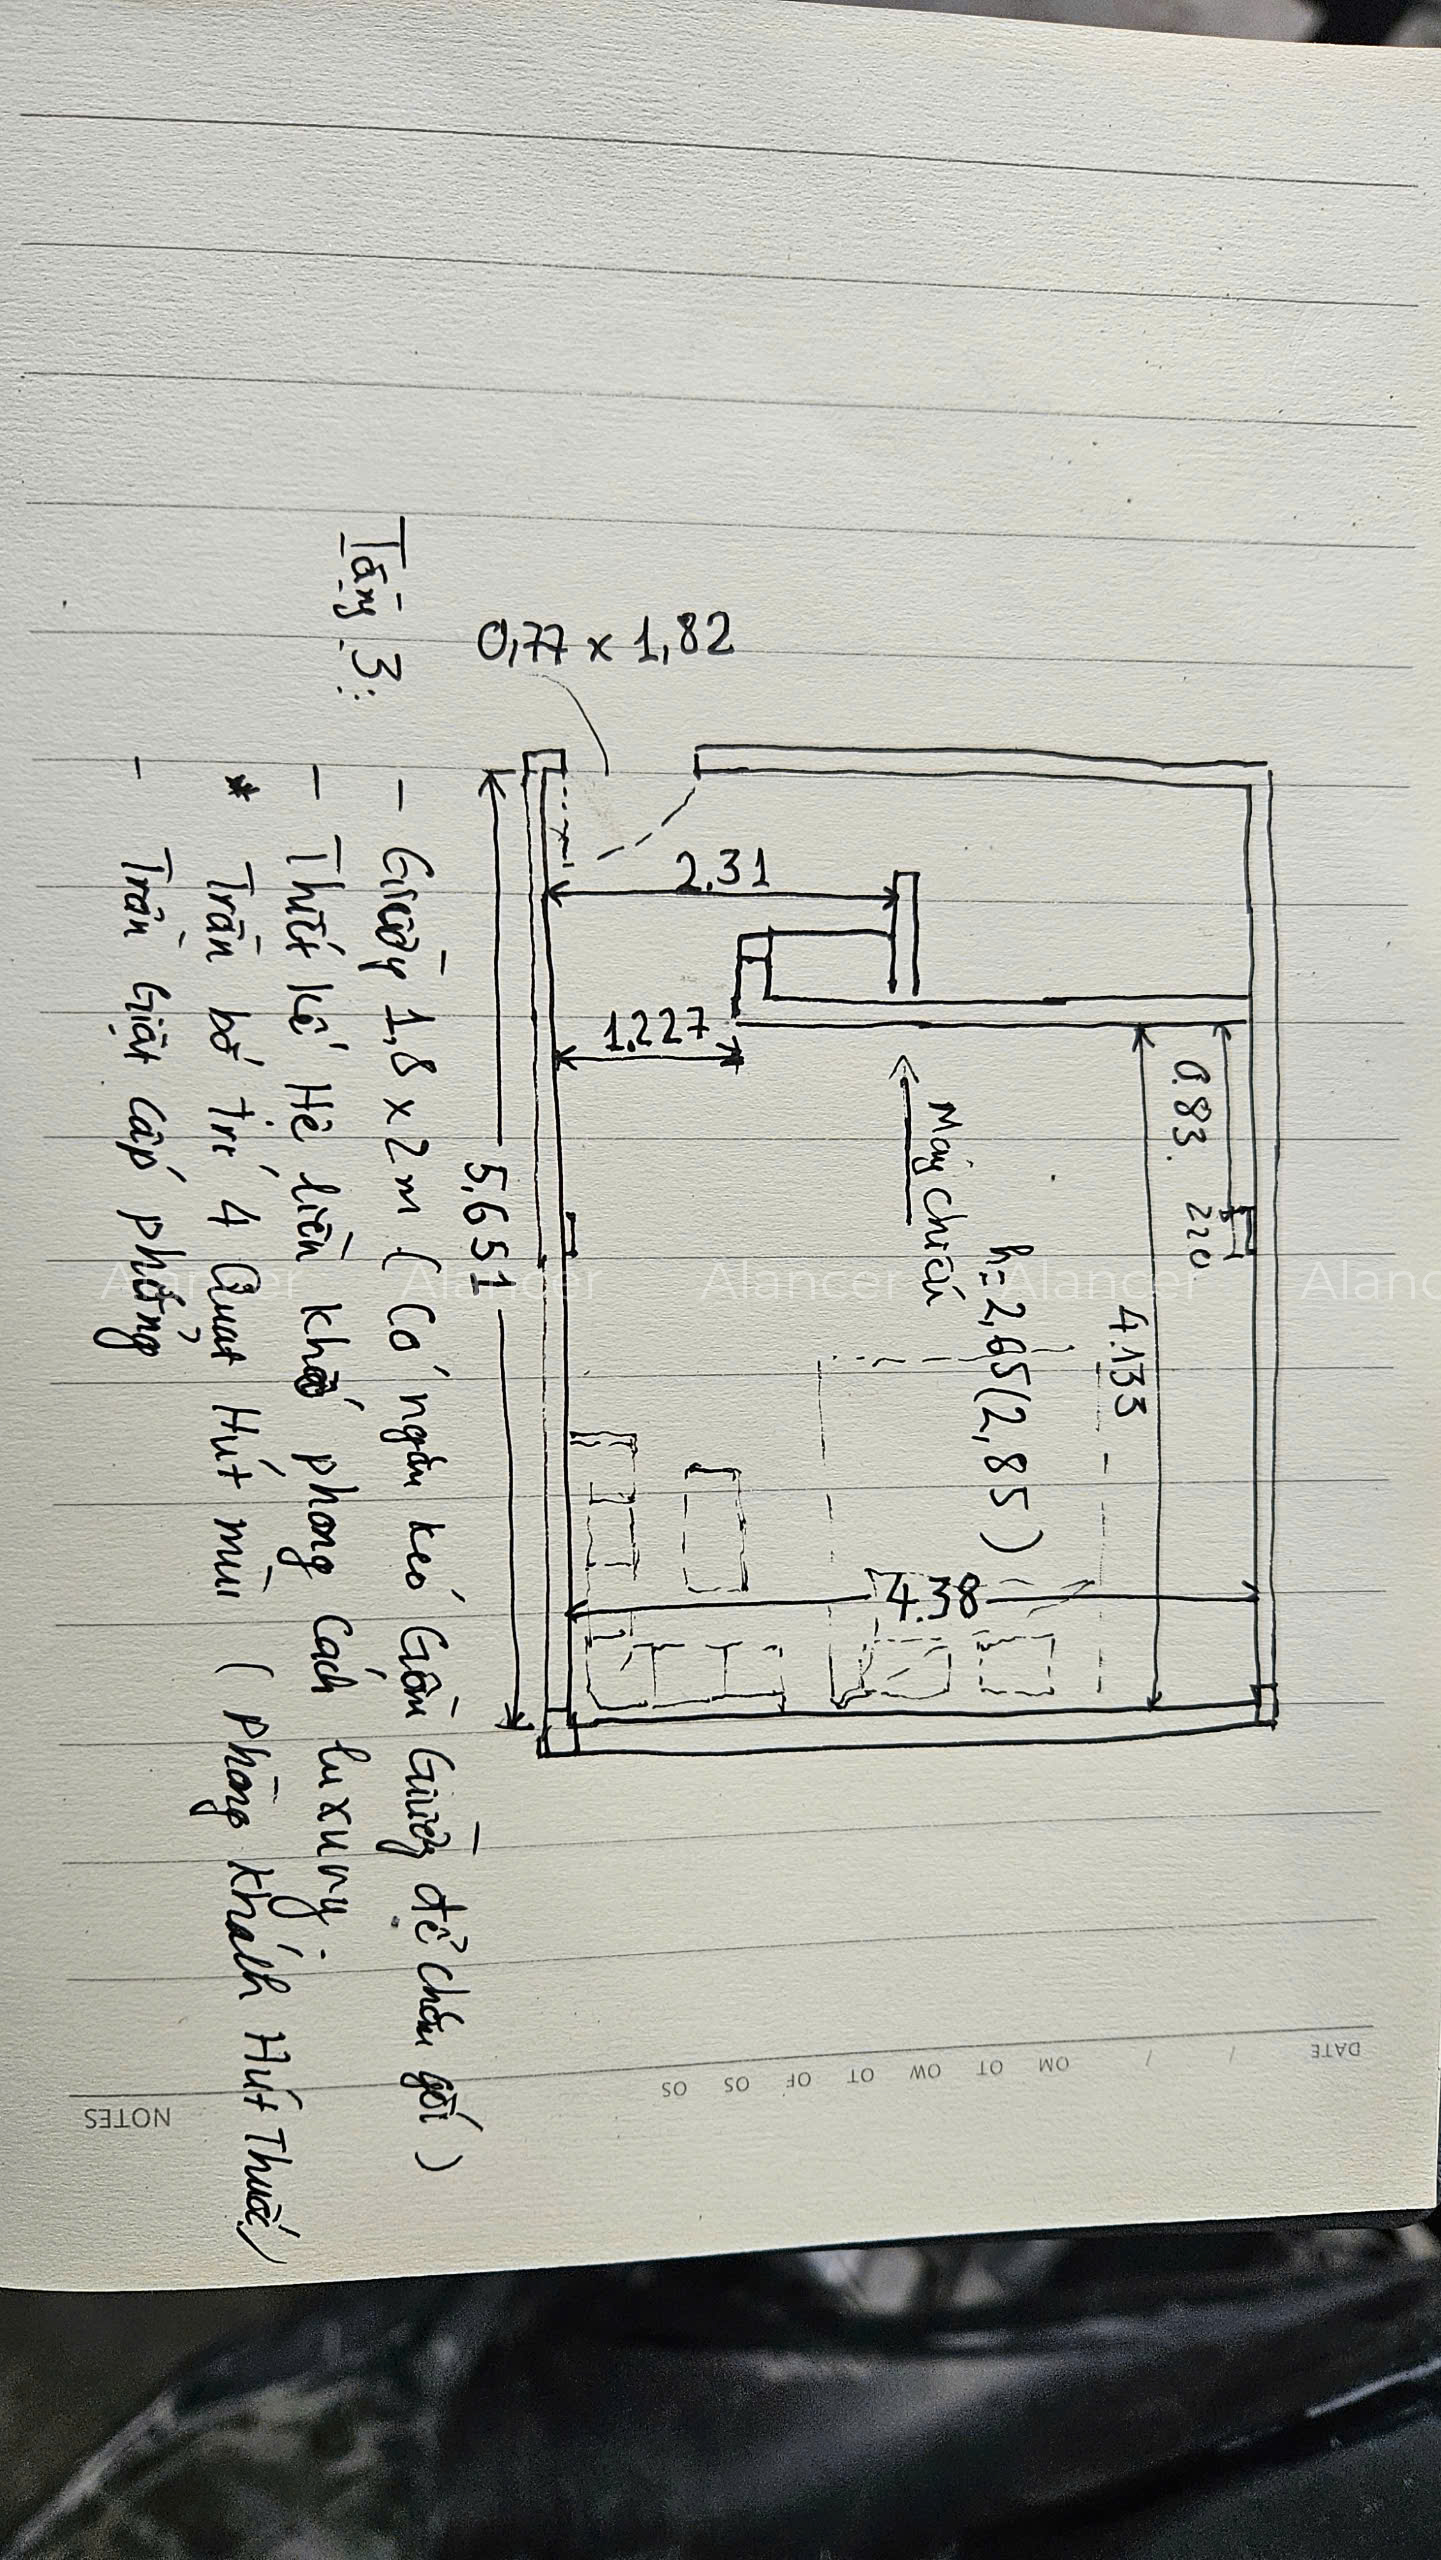 0,77 x 1,82
2.31
1.227
5.651
0.83.
220
4.133
Máy chiếu
h=2,65(2,85)
4.38
Tầng 3:
- Giường 1,8 x 2m ( Có ngăn kéo Gầm Giường để chăn gối )
- Thiết kế Hệ liền khối phong cách luxury.
* Trần bố trí 4 Quạt Hút mùi ( phòng khách Hút Thuốc )
- Trần Giật cấp phẳng
DATE / /
MO TO WO TO FO SO SO
NOTES
Alancer Alancer Alancer Alancer Alanc